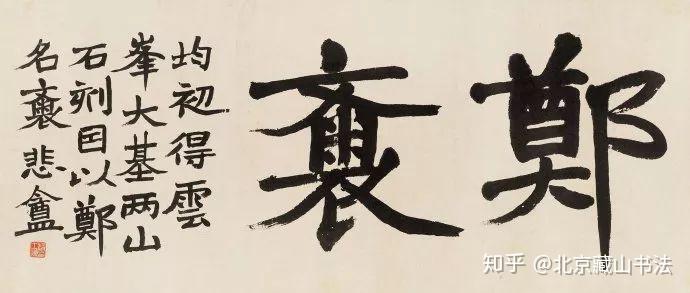 鄭齋
均初得雲
峯大基两山
石刻因以鄭
名齋悲盦
知乎 @北京藏山书法